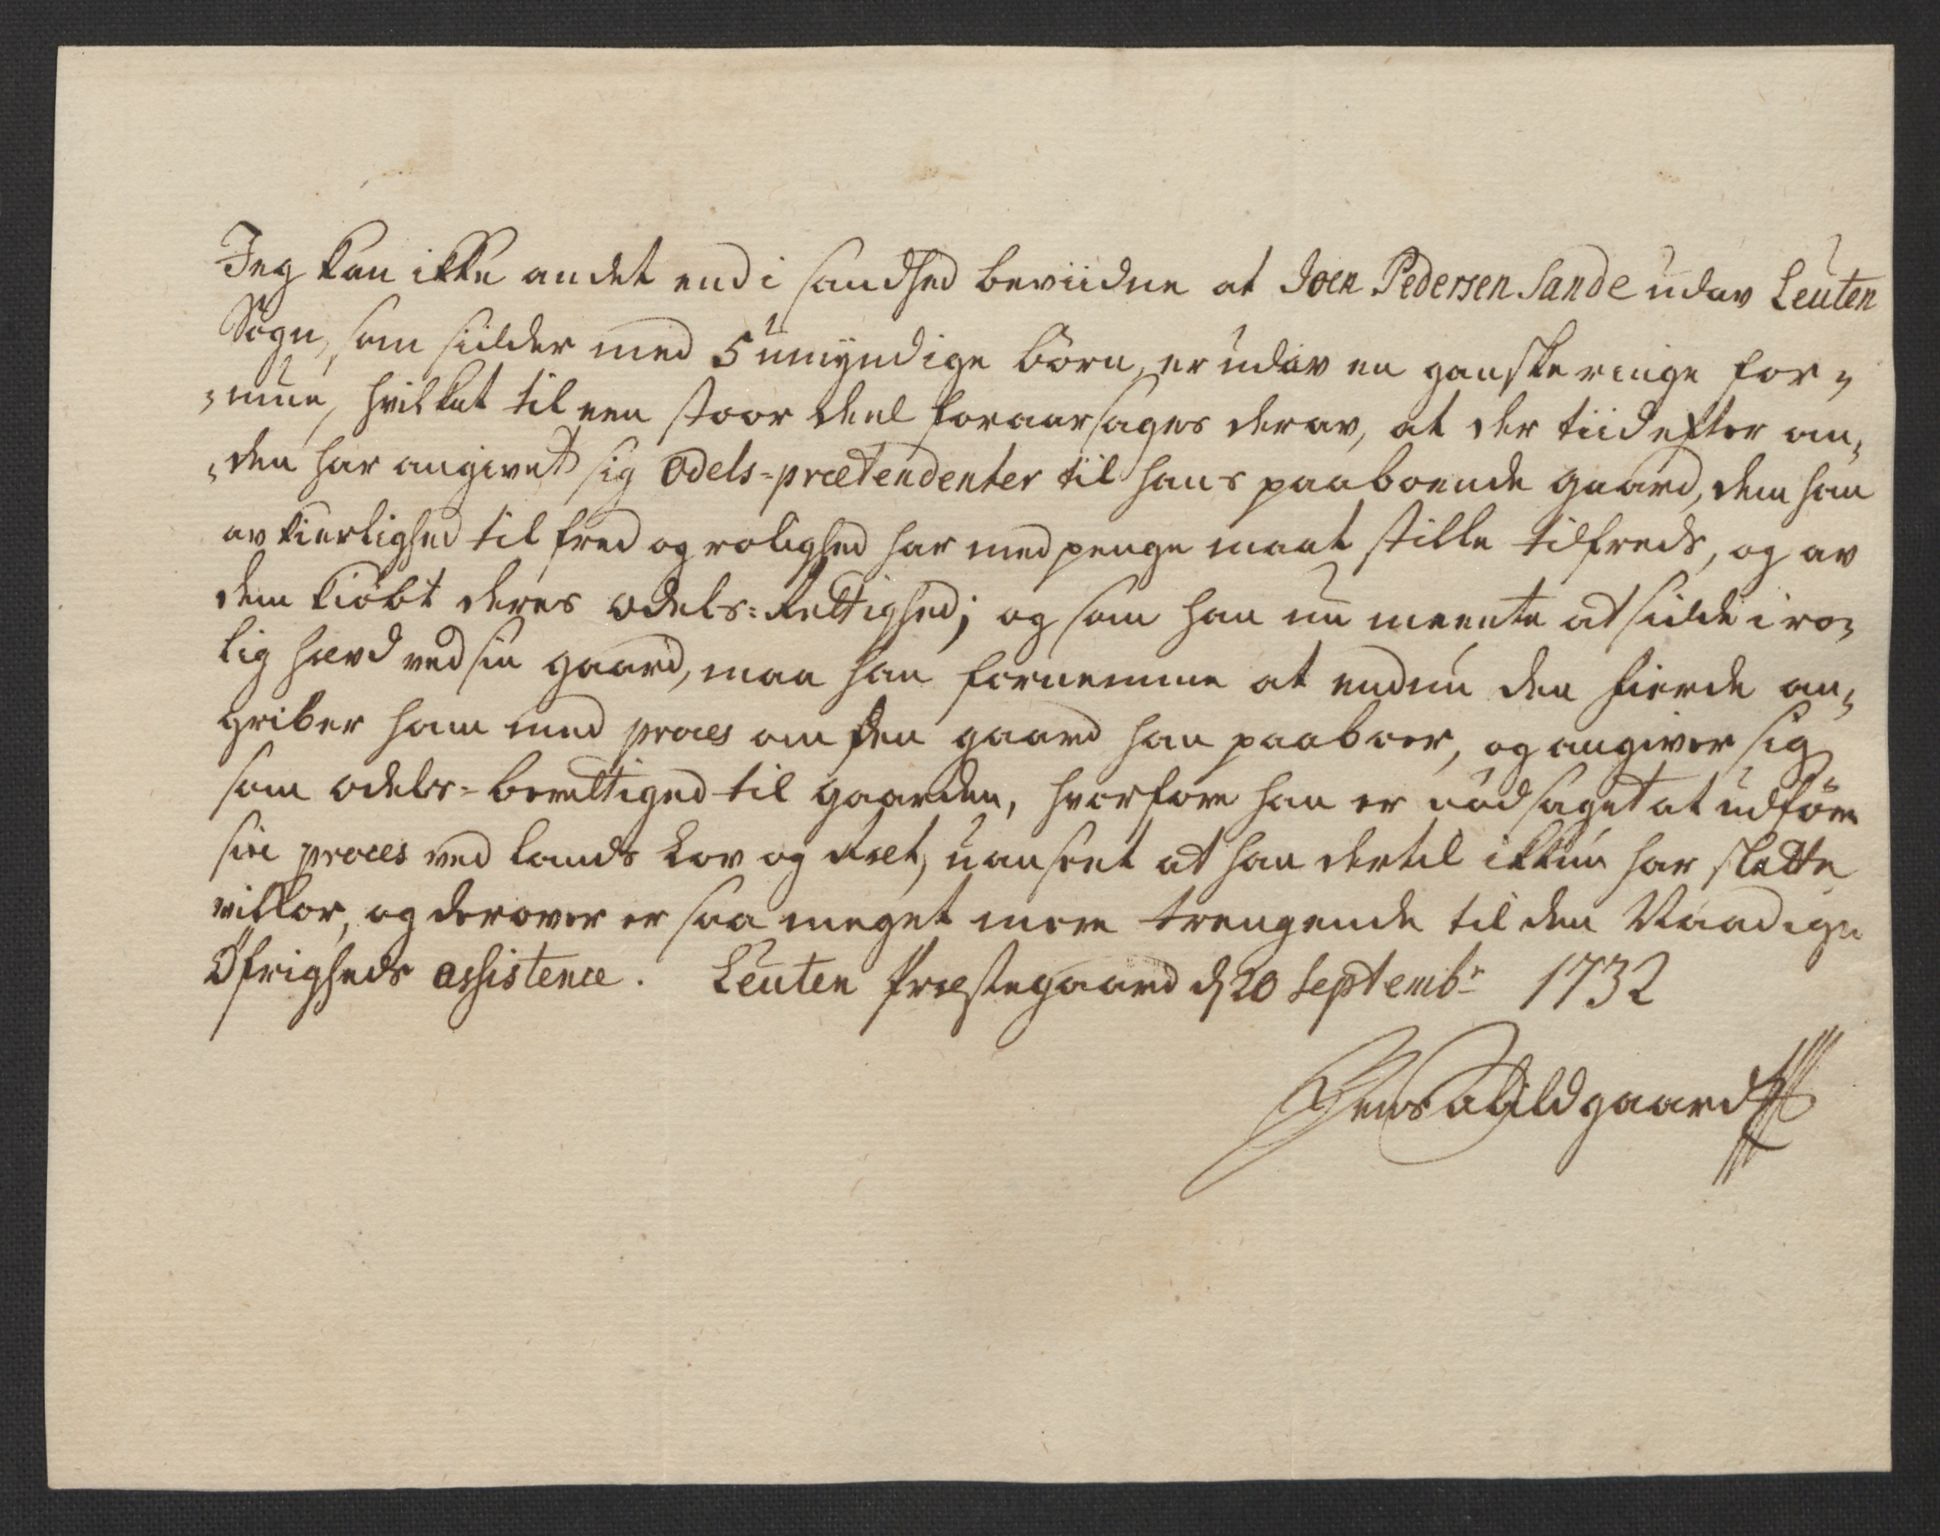 Jeg kan ikke andet end i sandhed beviidne at Joen Pedersen Sande udav Leuten
Sogn, som sidder med 5 umyndige börn, er udav en ganske ringe for-
-mue, hvilket til een stoor deel foraarsages derav, at der tiid efter an-
-den har angivet sig Odels-prætendenter til hans paaboende gaard, dem han
av kierlighed til fred og rolighed har med penge maat stille tilfreds, og av
dem kiöbt deres odels-Rettighed; og som han nu meente at sidde i ro-
lig hævd ved sin gaard, maa han fornemme at endnu den fierde an-
griber ham med proces om den gaard han paaboer, og angiver sig
som odels-berettiged til gaarden, hvorfore han er nödsaget at udföre
sin proces ved lands Lov og Ræt, uanseet at han dertil ikkun har slette
vilkor, og derover er saa meget mere trengende til den Naadige
Öfrigheds assistence. Leuten Præstegaard d 20 Septembr 1732
Jens Abildgaard